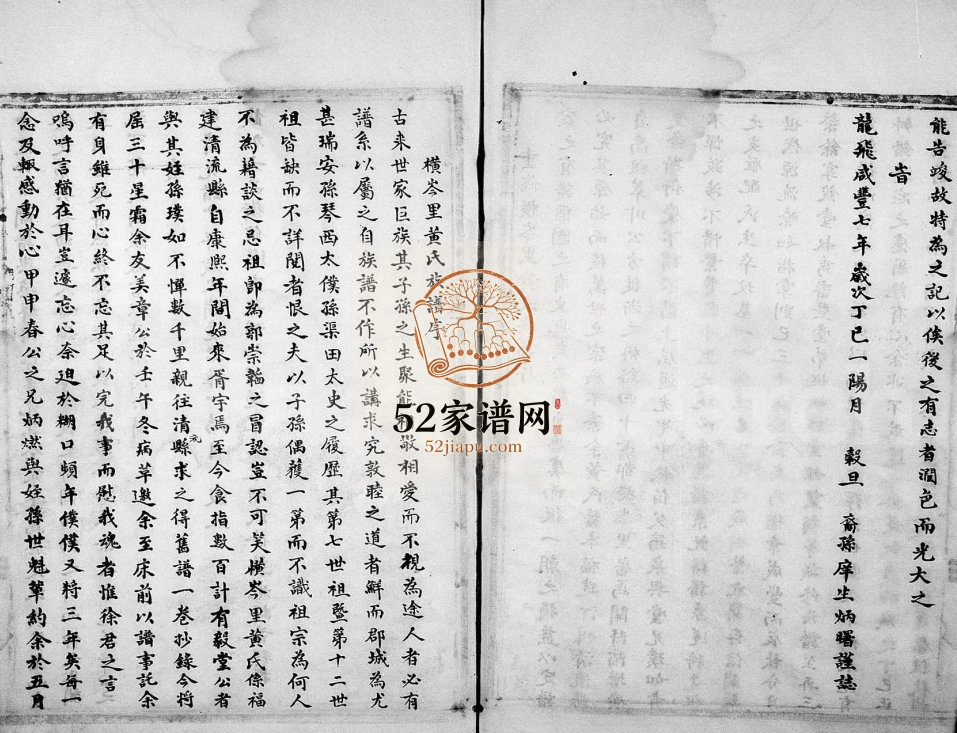 能告竣故特為之記以俟後之有志者潤色而光大之
旹
龍飛咸豐七年歲次丁巳一陽月 穀旦 裔孫庠生炳曙謹誌
橫岑里黃氏族譜序
古來世家巨族其子孫之生聚能相敬相愛而不視為途人者必有
譜系以屬之自族譜不作所以講求究敦睦之道者鮮而郡城為尤
甚瑞安孫琴西太僕孫渠田太史之履歷其第七世祖暨第十二世
祖皆缺而不詳閱者恨之夫以子孫偶獲一第而不識祖宗為何人
不為籍談之忌祖即為郭崇韜之冒認豈不可笑橫岑里黃氏係福
建清流縣自康熙年間始來胥宇焉至今食指數百計有毅堂公者
與其姪孫璞如不憚數千里親往清縣求之得舊譜一卷抄錄今將
屆三十星霜余友美章公於壬午冬病草邀余至床前以譜事託余
有身雖死而心終不忘其足以完我事而慰我魂者惟徐君之言
嗚呼言猶在耳豈遽忘心奈迫於糊口頻年僕僕又將三年矣每一
念及輒感動於心甲申春公之兄炳燃與姪孫世魁輩約余於五月
52家谱网
52jiapu.com